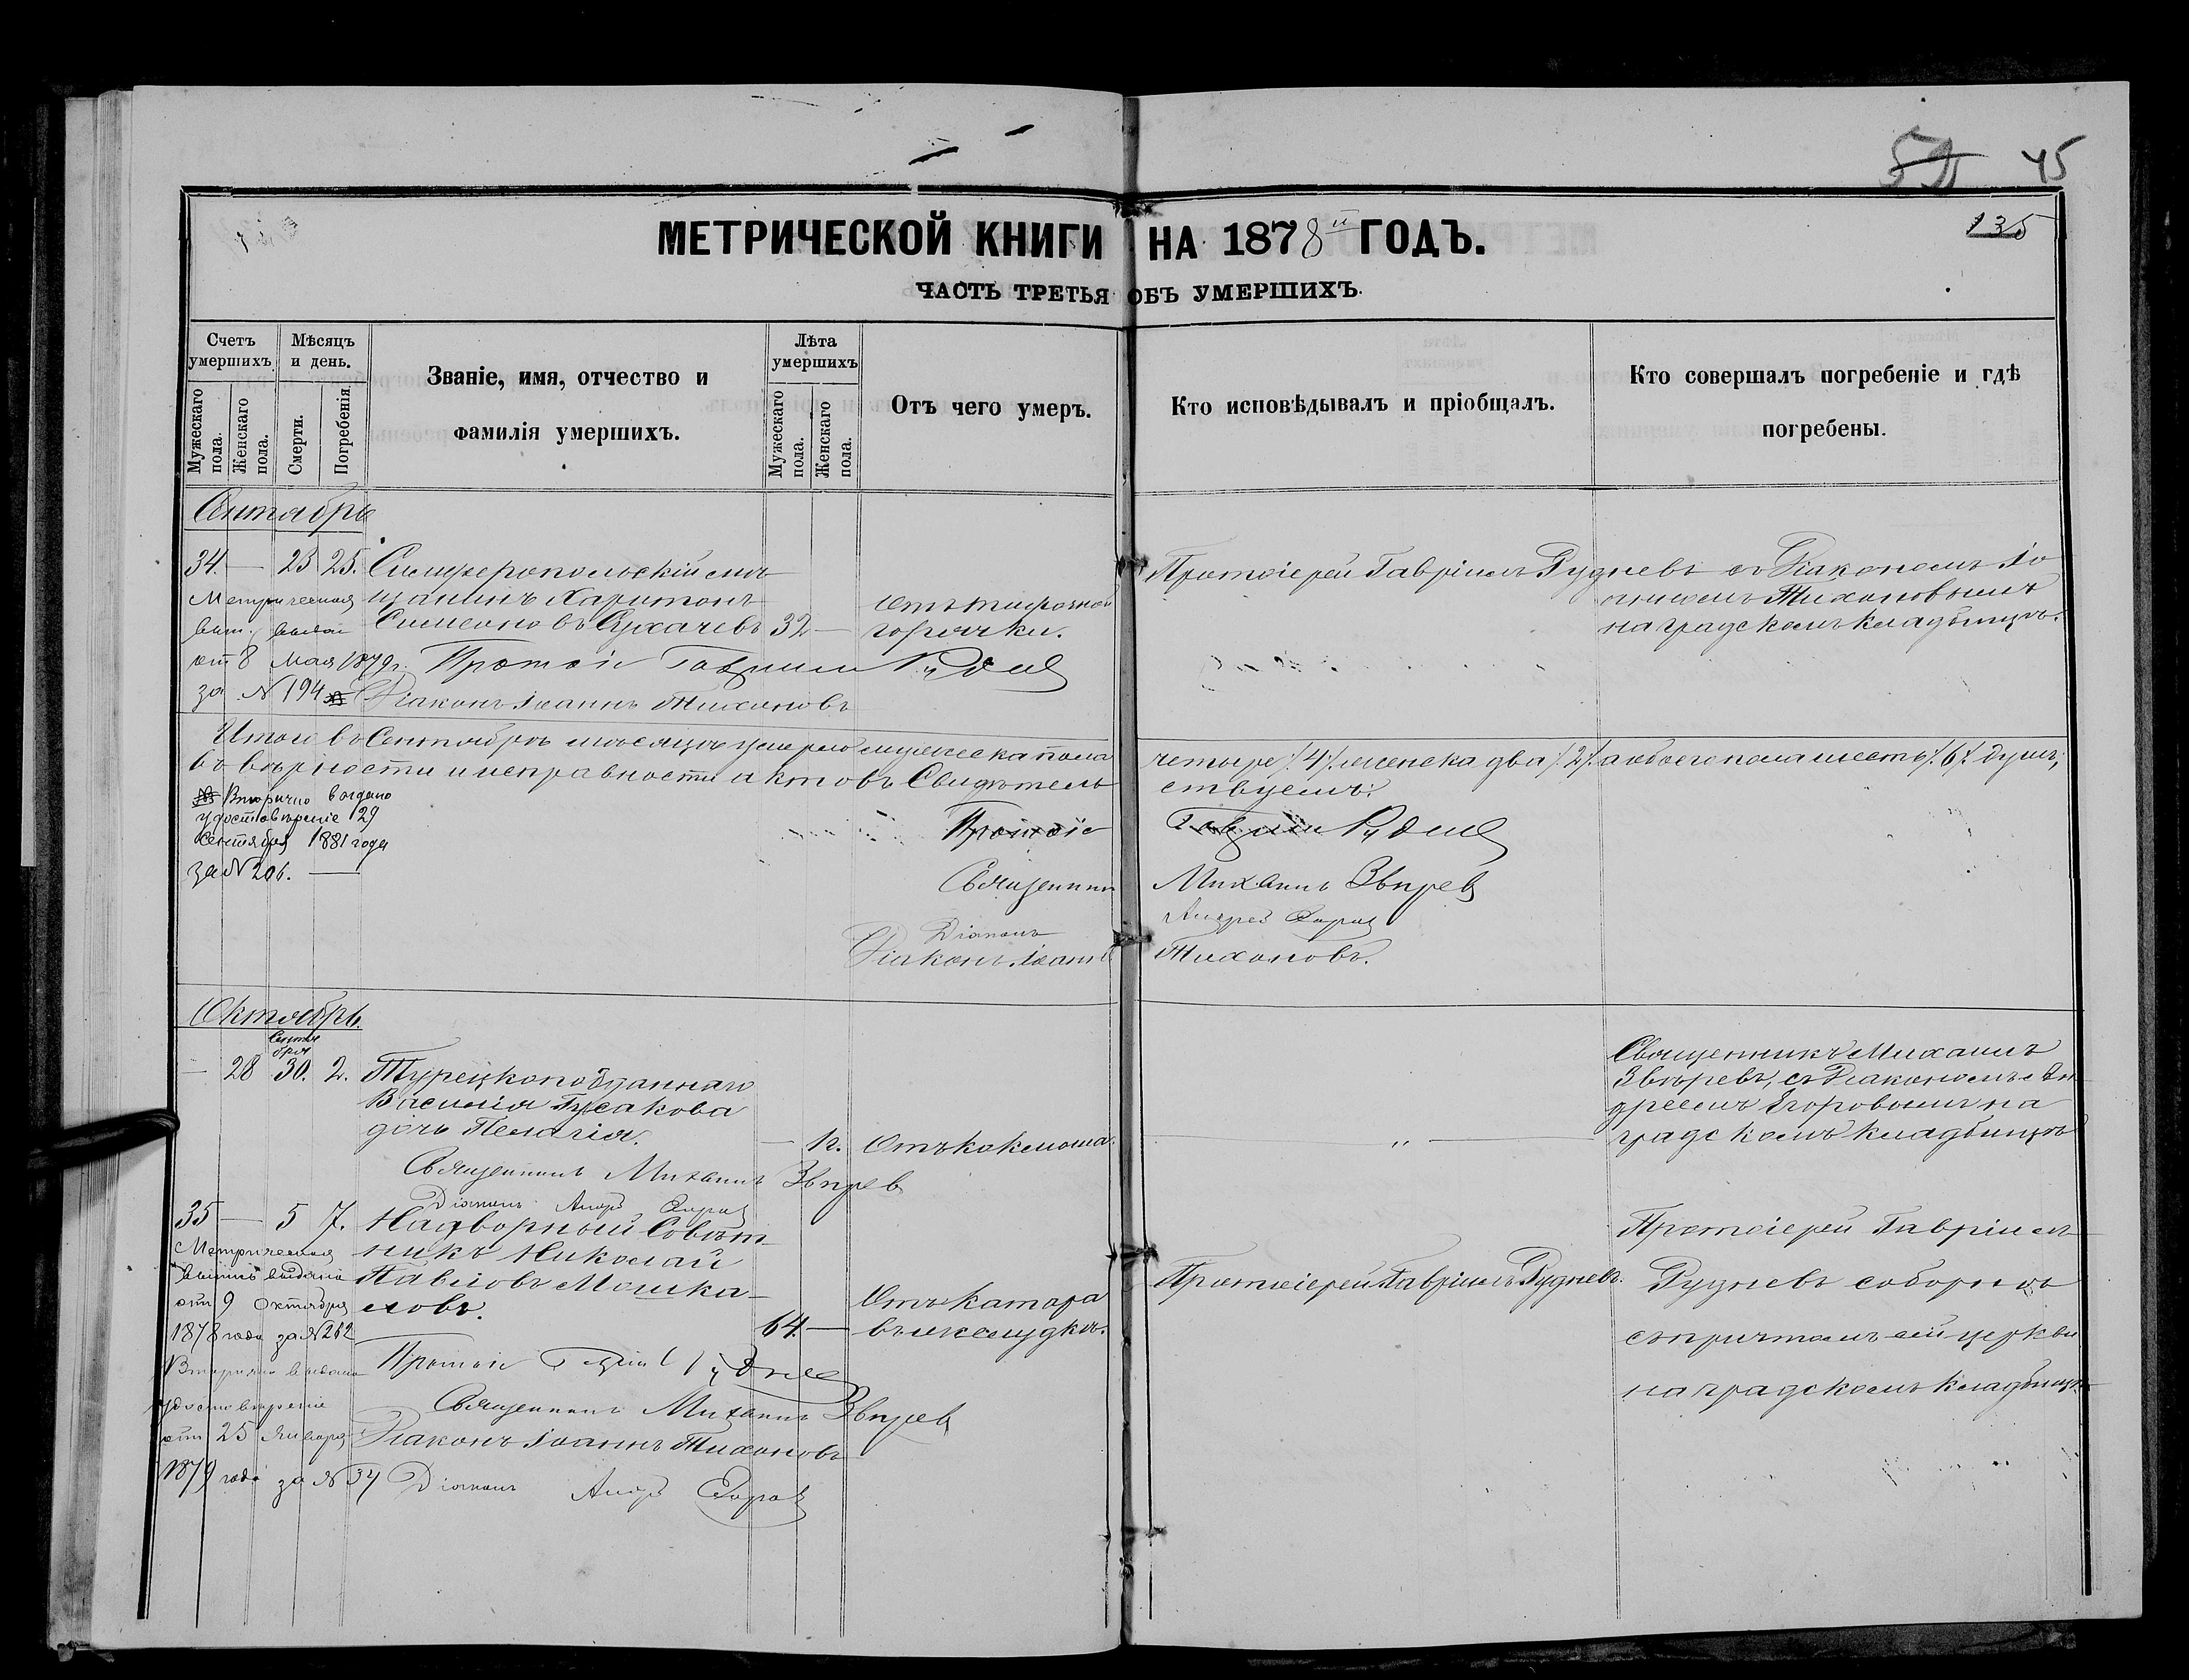 59 45
135
МЕТРИЧЕСКОЙ КНИГИ НА 1878й ГОДЪ.
ЧАСТЬ ТРЕТЬЯ ОБЪ УМЕРШИХЪ.
Счетъ умершихъ.
Мужескаго пола.
Женскаго пола.
Мѣсяцъ и день.
Смерти.
Погребенія.
Званіе, имя, отчество и
фамилія умершихъ.
Лѣта умершихъ
Мужескаго пола.
Женскаго пола.
Отъ чего умеръ.
Кто исповѣдывалъ и пріобщалъ.
Кто совершалъ погребеніе и гдѣ
погребены.
Сентябрь
34. — 23 25. Симферопольскій мѣ
щанинъ Харитонъ
Симеоновъ Сухачевъ 32 —
отъ тифозной
горячки.
Протоіерей Гавріилъ Рудневъ съ Діакономъ Іо
анномъ Тихоновымъ
на градскомъ кладбищѣ.
Метрическая
вып. выдан
от 8 Мая 1879 г.
за № 194
Протоіе Гавріил Руднев
Діаконъ Іоаннъ Тихоновъ
Итого въ Сентябрѣ мѣсяцѣ умерло мужеска пола четыре /4/. женска два /2/. а обоего пола шесть /.6/. душъ;
въ вѣрности и исправности актовъ Свидѣтельствуемъ:
Вторично выдано
удостовѣреніе 29
сентября 1881 года
за № 206. —
Протоіе Гавріил Руднев
Священникъ Михаилъ Звѣрев
Діаконъ Андрей Егоров
Діаконъ Іоаннъ Тихоновъ.
Октябрь.
Сентя
бря
— 28 30. 2. Турецкоподданнаго
Василія Гусакова
дочь Пелагія. — 1 г. Отъ коклюша.
— „ —
Священникъ Михаилъ
Звѣревъ, съ Діакономъ Ан
дреемъ Егоровымъ на
градскомъ кладбищѣ
Священникъ Михаилъ Звѣрев
Діаконъ Андр Егоров
35 — 5 7. Надворный Совѣт
никъ Николай
Павловъ Мошка
ловъ. 64. —
Отъ катара
въ желудкѣ.
Протоіерей Гавріилъ Рудневъ.
Протоіерей Гавріилъ
Рудневъ соборнѣ
съ причтомъ сей церкви
на градскомъ кладбищѣ.
Метрическая
выпись выдана
отъ 9 Октября
1878 года за № 262
Вторично выдано
удостовѣреніе
отъ 25 Января
1879 года за № 34
Протоіе Гавріил Руднев
Священникъ Михаилъ Звѣрев
Діаконъ Іоаннъ Тихоновъ
Діаконъ Андр Егоров